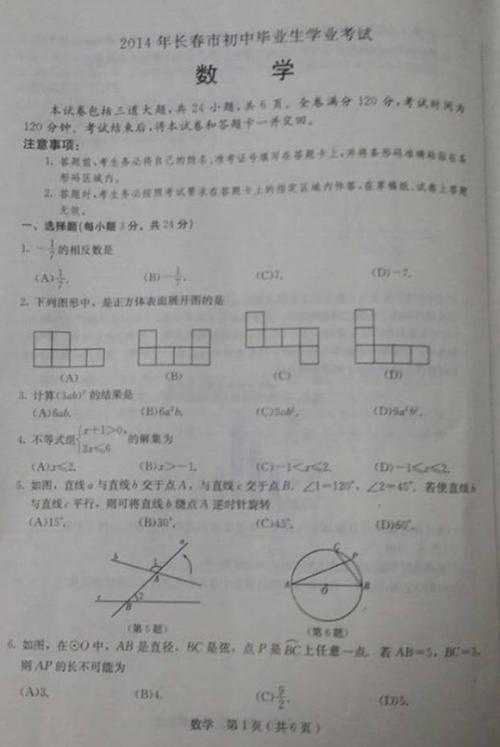 2014 年长春市初中毕业生学业考试
数 学
本试卷包括三道大题,共 24 小题,共 6 页。全卷满分 120 分,考试时间为
120 分钟。考试结束后,将本试卷和答题卡一并交回。
注意事项:
1. 答题前,考生务必将自己的姓名、准考证号填写在答题卡上,并将条形码准确粘贴在条
形码区域内。
2. 答题时,考生务必按照考试要求在答题卡上的指定区域内作答,在草稿纸、试卷上答题
无效。
一、选择题(每小题 3 分,共 24 分)
1. -1/7 的相反数是
(A) 1/7. (B) -1/7. (C)7. (D)-7.
2. 下列图形中,是正方体表面展开图的是
(A) (B) (C) (D)
3. 计算(3ab)² 的结果是
(A)6ab. (B)6a²b. (C)9ab². (D)9a²b².
4. 不等式组{x+1>0, 3x≤6 的解集为
(A)x≤2. (B)x>-1. (C)-1<x≤2. (D)-1≤x≤2.
5. 如图,直线 a 与直线 b 交于点 A,与直线 c 交于点 B. ∠1=120°, ∠2=45°. 若使直线 b
与直线 c 平行,则可将直线 b 绕点 A 逆时针旋转
(A)15°. (B)30°. (C)45°. (D)60°.
a b 1 A B 2 c
C P A O B
(第 5 题) (第 6 题)
6. 如图,在⊙O 中,AB 是直径,BC 是弦,点 P 是 BC 上任意一点. 若 AB=5, BC=3,
则 AP 的长不可能为
(A)3. (B)4. (C) 9/2. (D)5.
数学 第 1 页 (共 6 页)